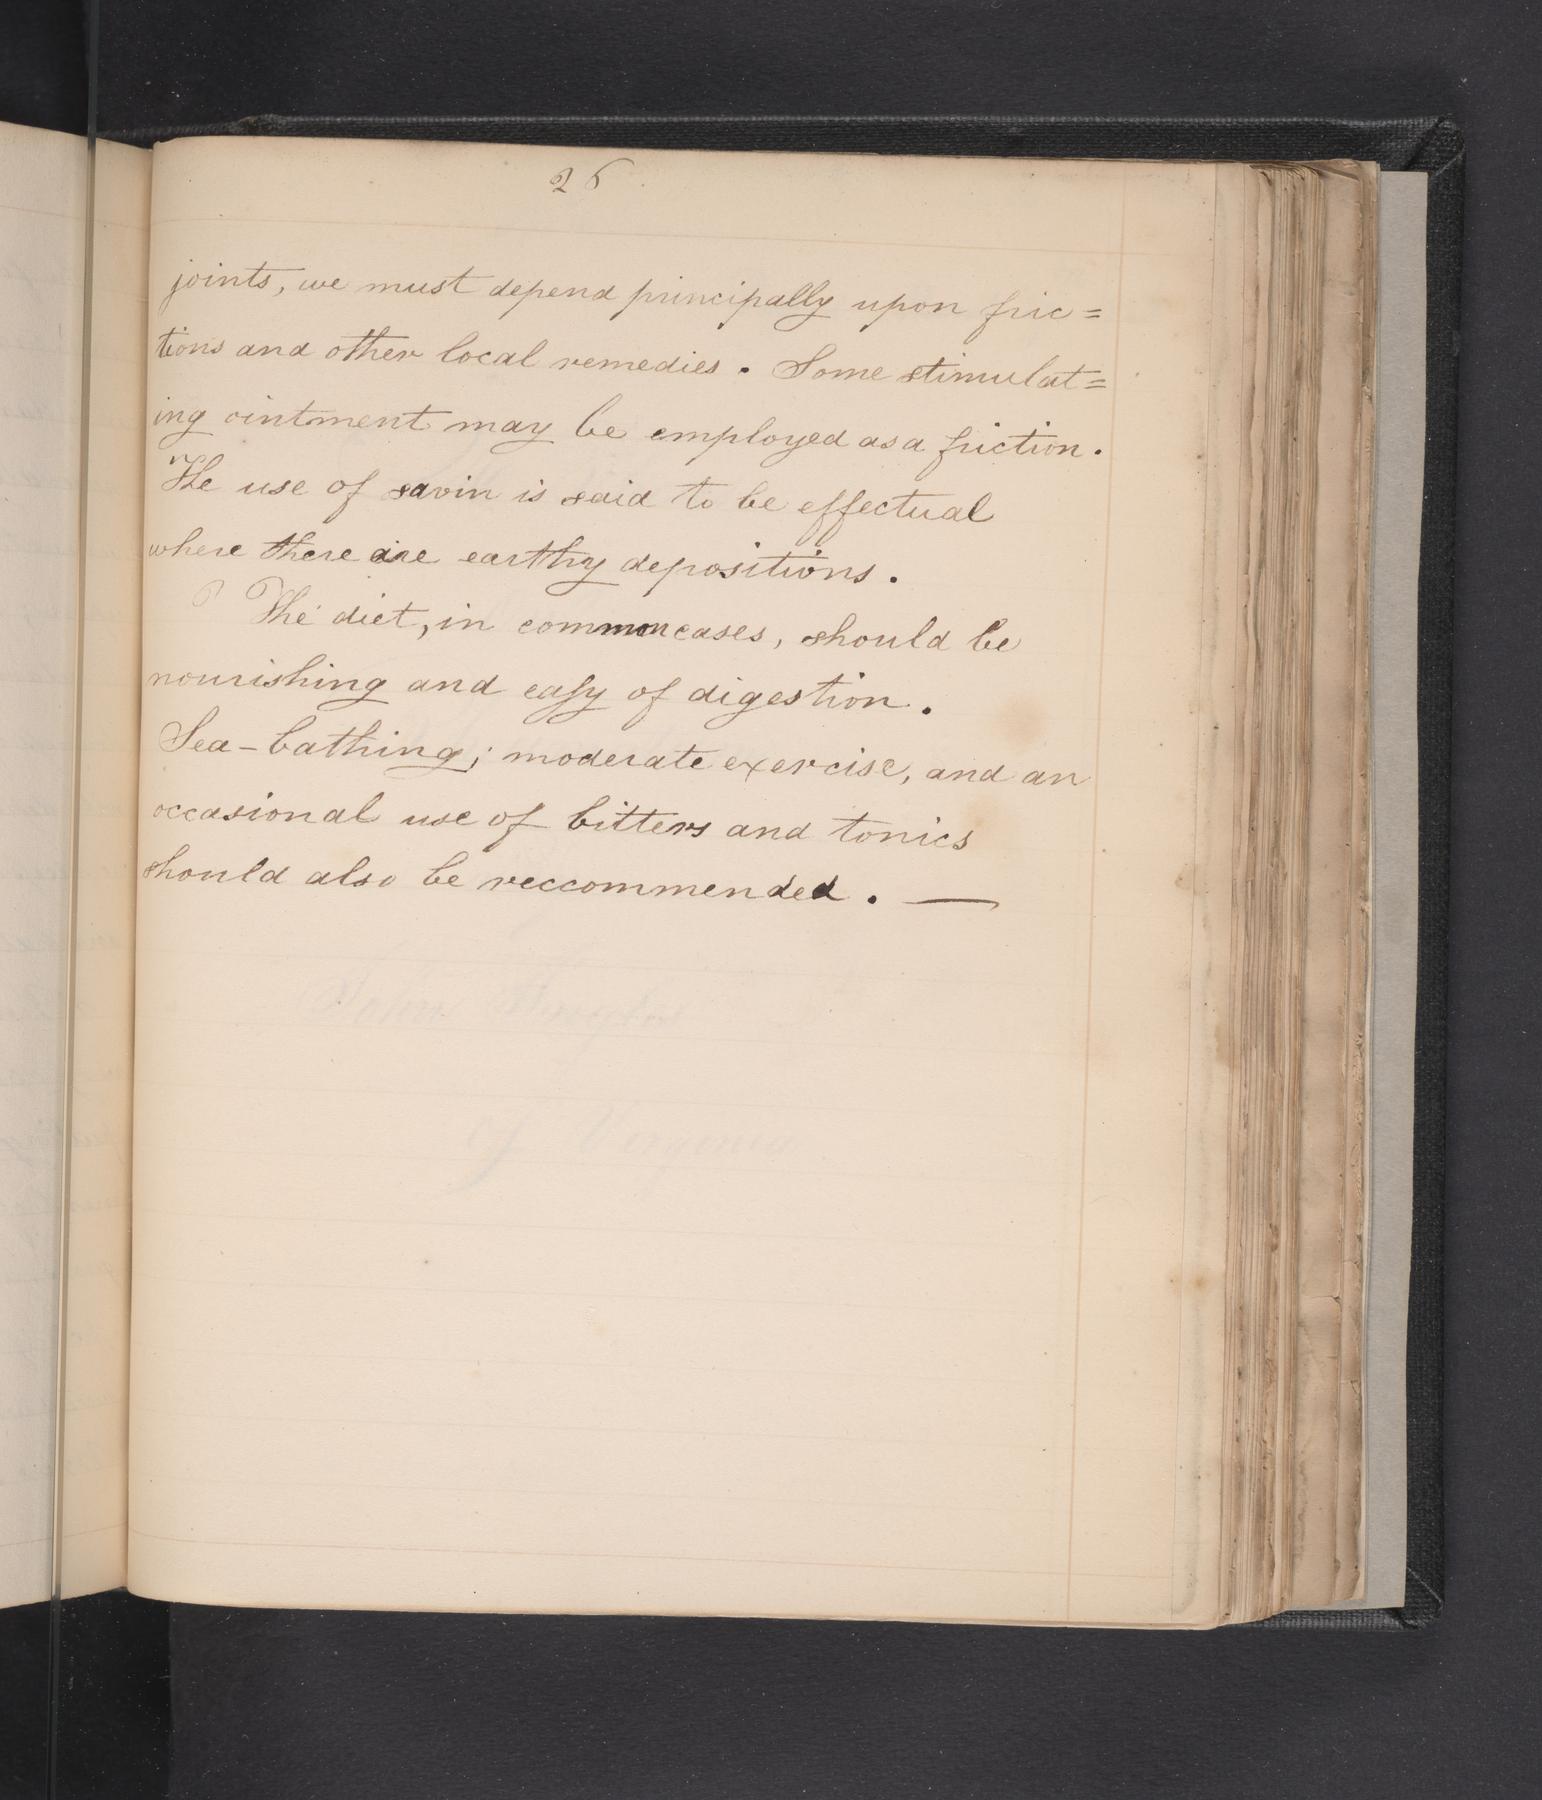 26
joints, we must depend principally upon fric=
tions and other local remedies. Some stimulat=
ing ointment may be employed as a friction.
The use of savin is said to be effectual
where there are earthy depositions.
The diet, in common cases, should be
nourishing and easy of digestion.
Sea-bathing; moderate exercise, and an
occasional use of bitters and tonics
should also be reccommended. —
John
of Virginia